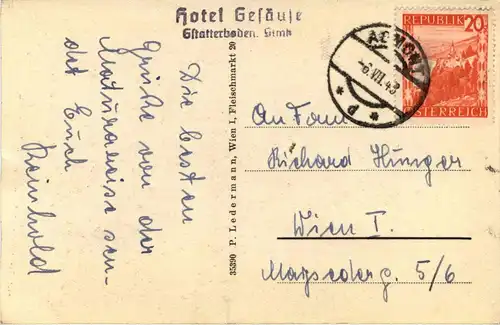 Hotel Gesäuse
Gstatterboden, Stmk
ADMONT
-6.VII.48
* P *
REPUBLIK 20
ÖSTERREICH
Die besten
Grüße von der
Maturareise sen-
det Euch
Reinhold
35390 P. Ledermann, Wien I, Fleischmarkt 20
An Fam
Richard Hunger
Wien I.
Maysederg. 5/6